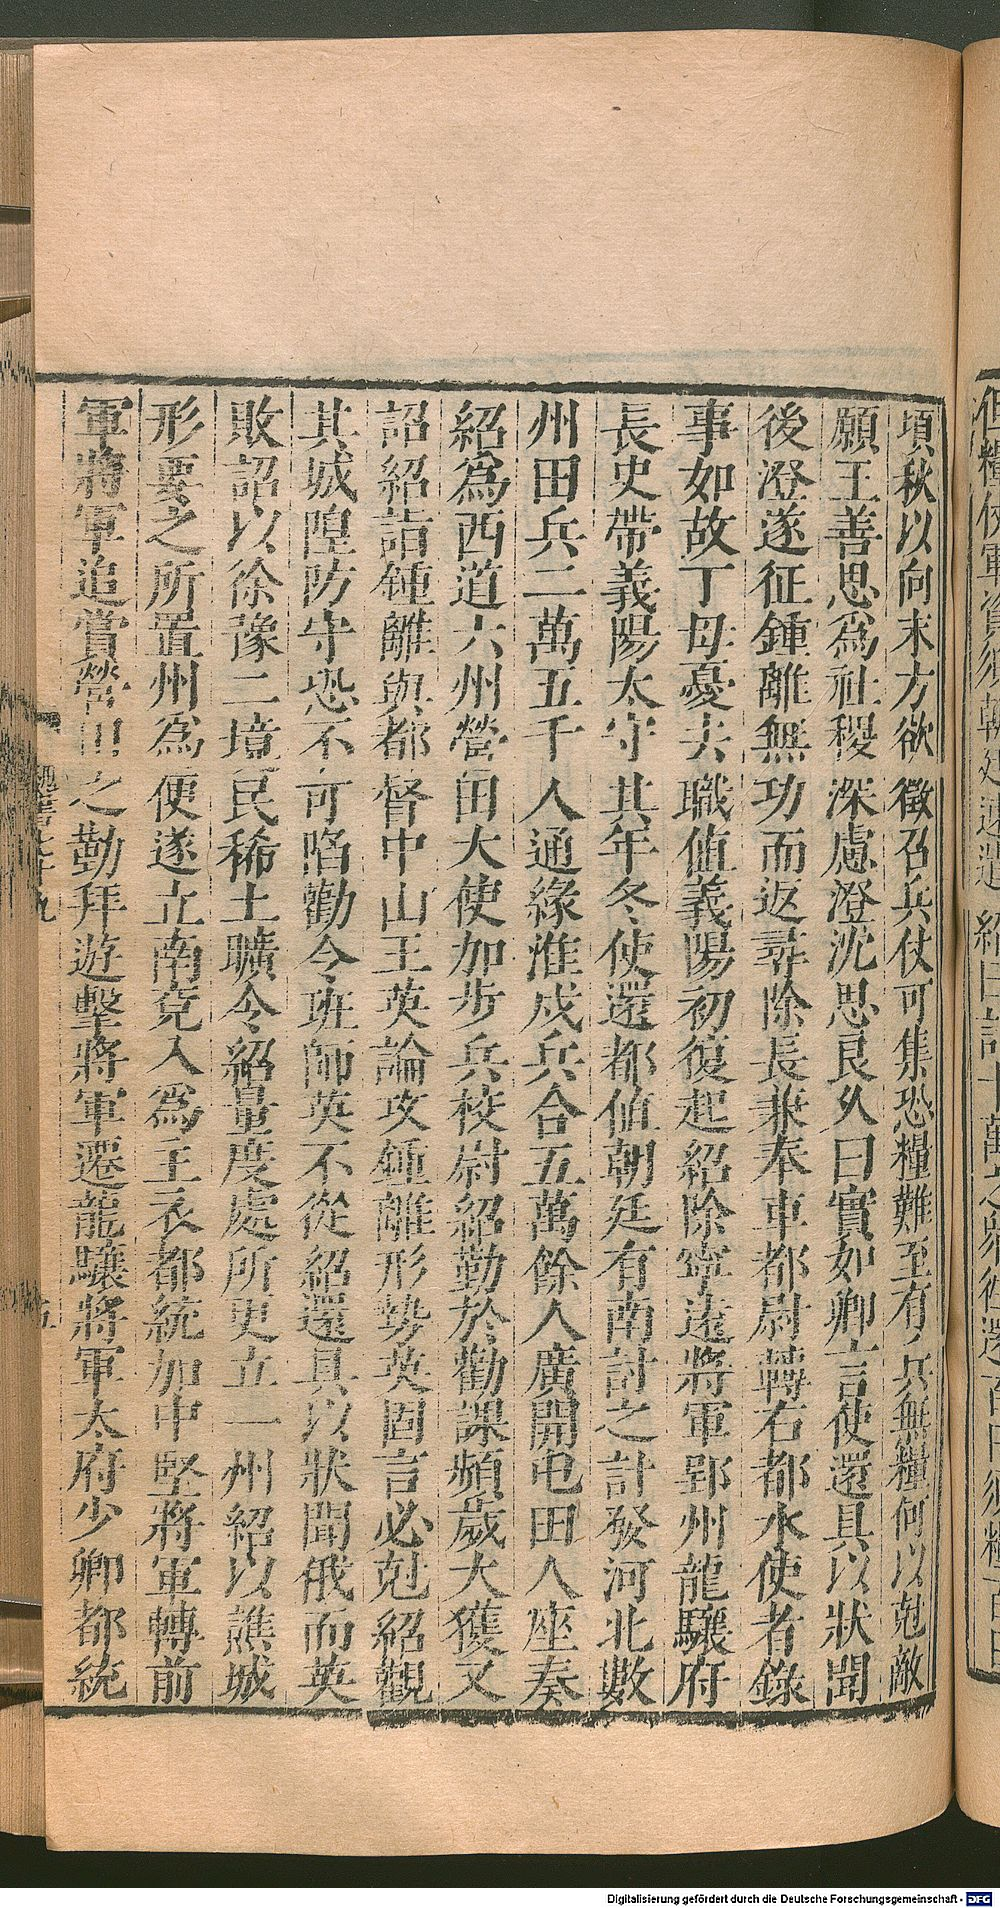 頃秋以向末方欲徵召兵仗可集恐糧難至有兵無糧何以尅敵
願王善思為社稷深慮澄沈思良久曰實如卿言使還具以狀聞
後澄遂征鍾離無功而返尋除長兼奉車都尉轉右都水使者錄
事如故丁母憂去職值義陽初復起紹除寧遠將軍郢州龍驤府
長史帶義陽太守其年冬使還都值朝廷有南討之計發河北數
州田兵二萬五千人通緣淮戍兵合五萬餘人廣開屯田八座奏
紹為西道六州營田大使加步兵校尉紹勤於勸課頻歲大獲又
詔紹詣鍾離與都督中山王英論攻鍾離形勢英固言必尅紹觀
其城隍防守恐不可陷勸令班師英不從紹還具以狀聞俄而英
敗詔以徐豫二境民稀土曠令紹量度處所更立一州紹以譙城
形要之所置州為便遂立南兗入為主衣都統加中堅將軍轉前
軍將軍追賞營田之勤拜遊擊將軍遷龍驤將軍太府少卿都統
Digitalisierung gefördert durch die Deutsche Forschungsgemeinschaft - DFG